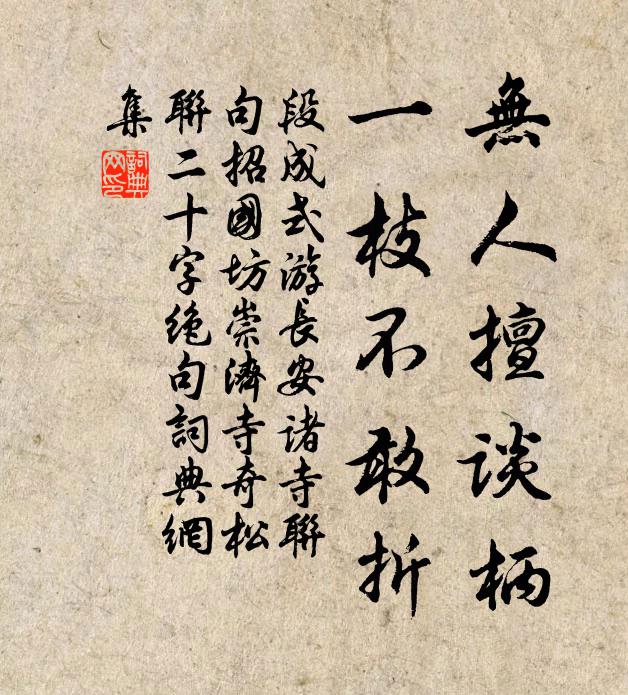 無人擅談柄
一枝不敢折
段成式游長安诸寺聯
句招國坊崇濟寺奇松
聯二十字绝句詞典網
集
詞典
网印